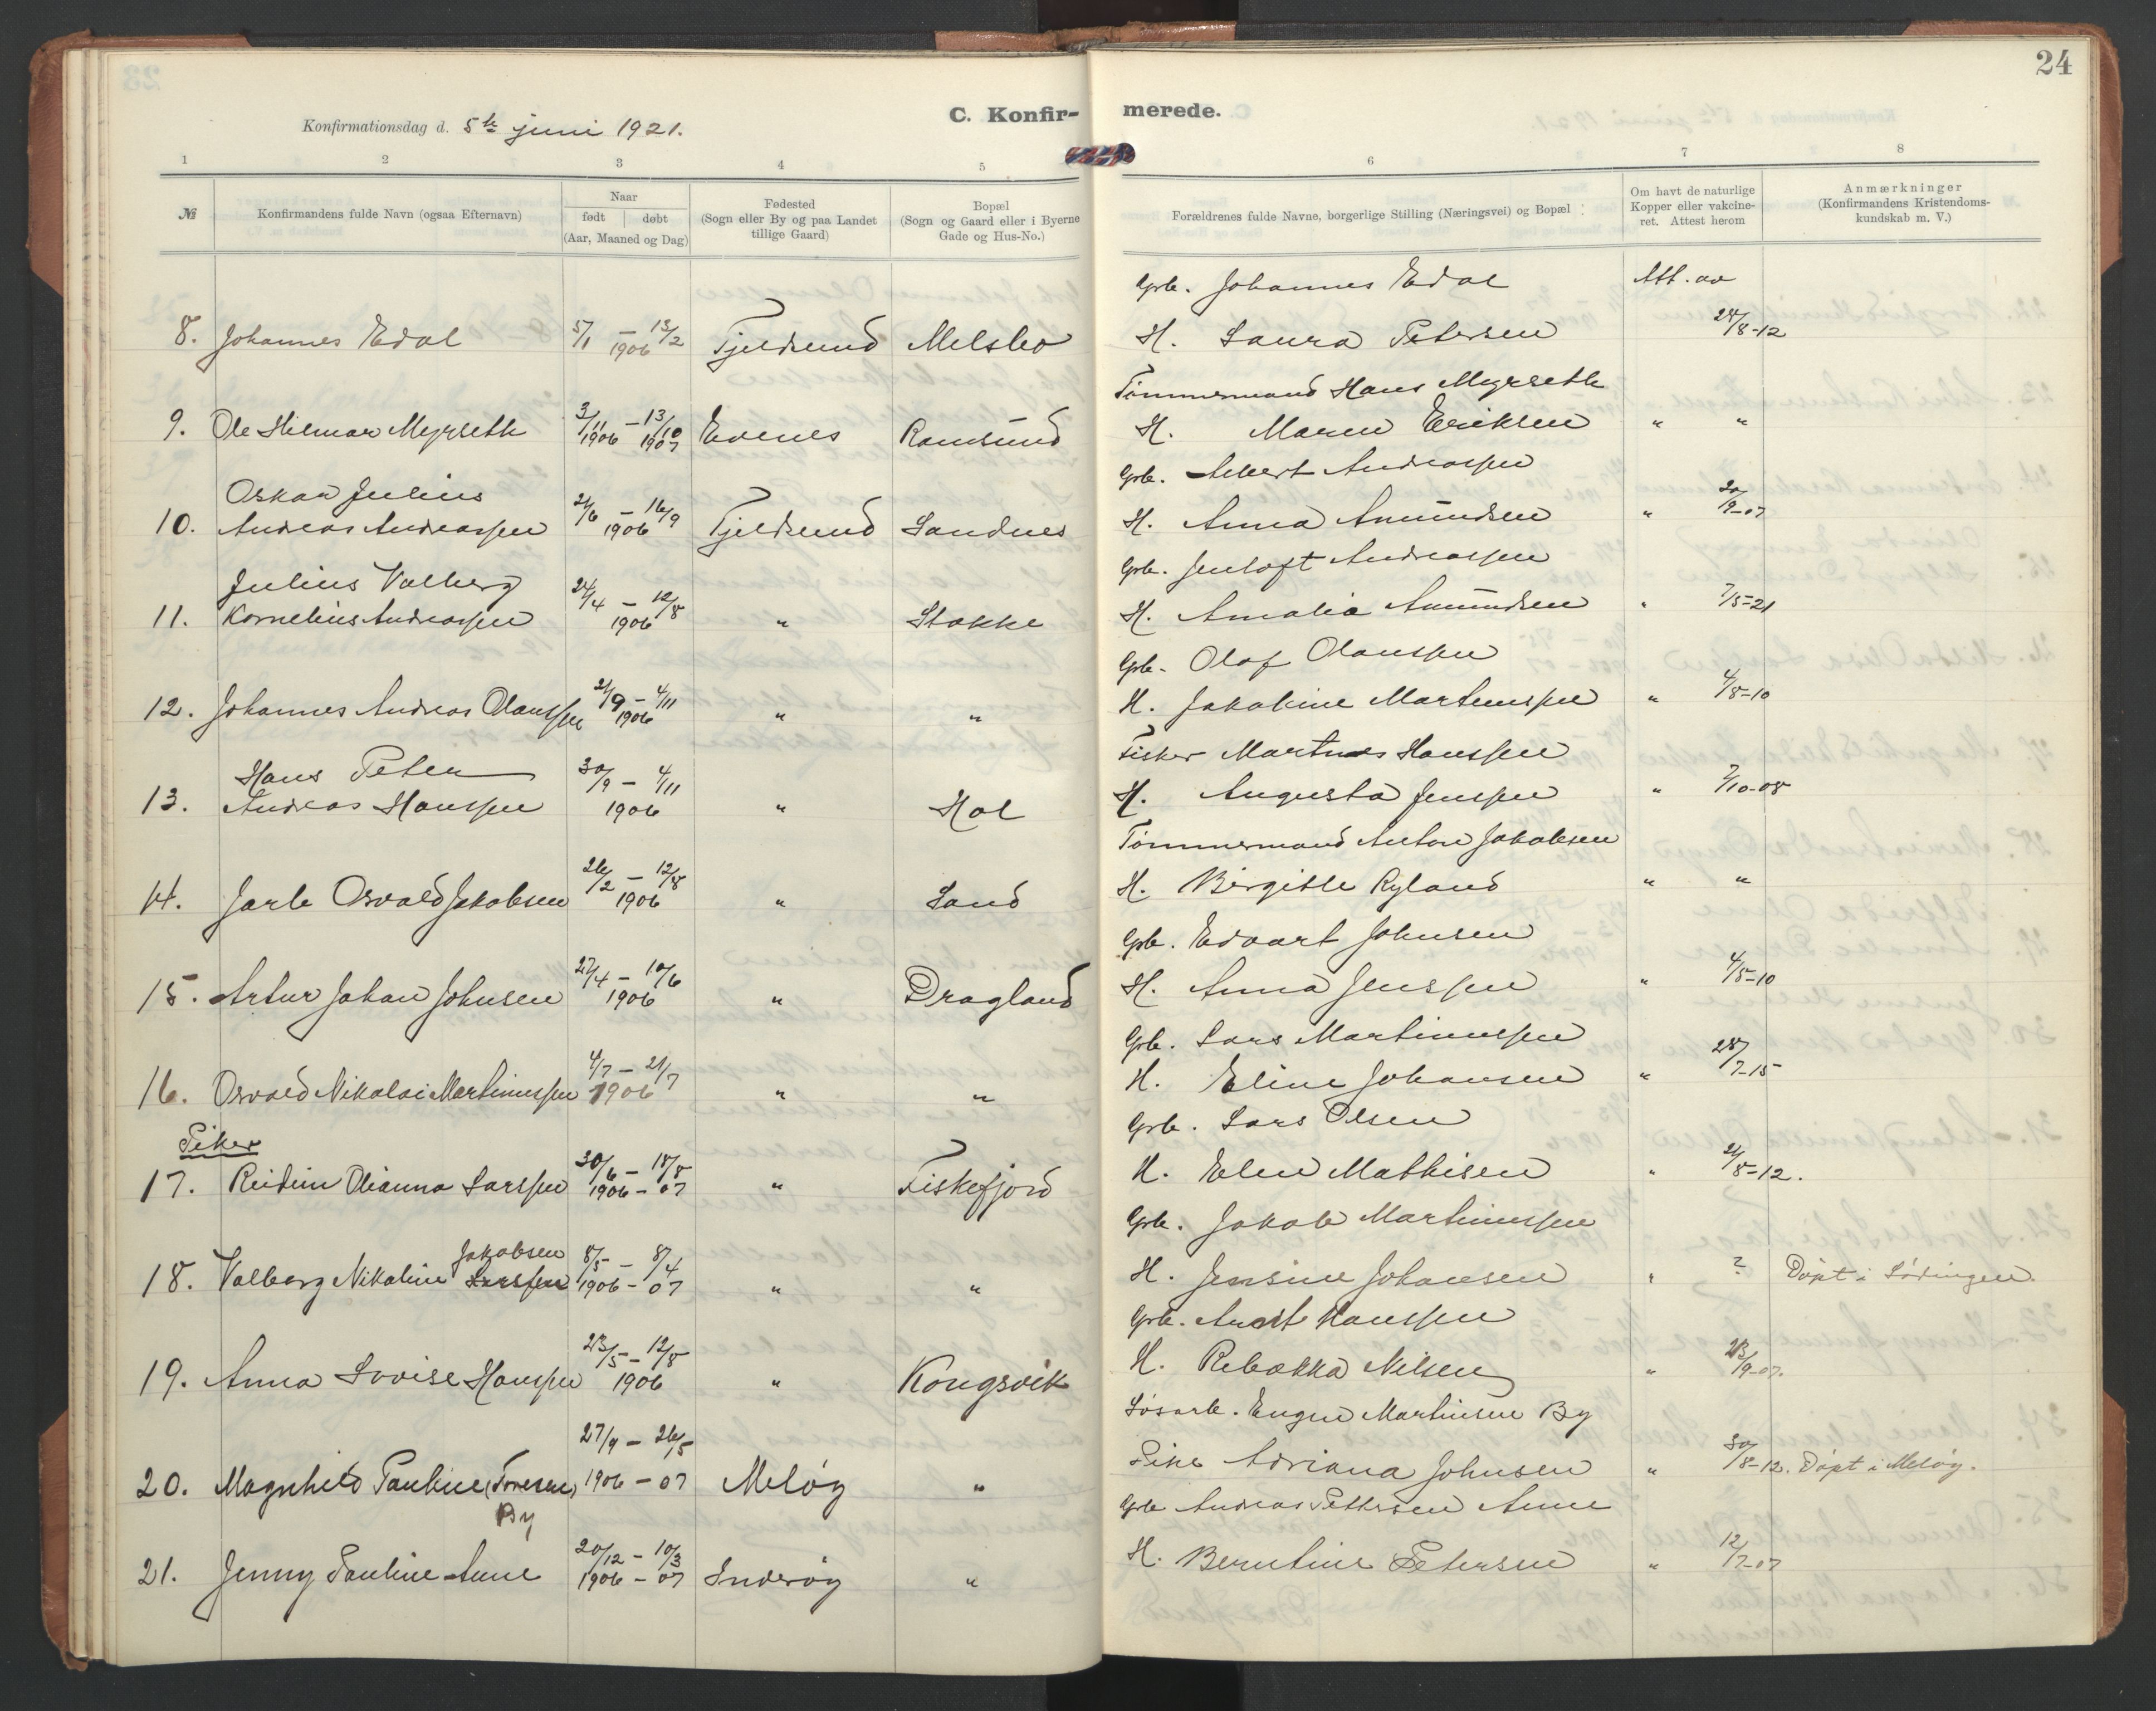 24
Konfirmationsdag d. 5te juni 1921.
C. Konfir-
merede.
1 2 3 4 5 6 7 8
№
Konfirmandens fulde Navn (ogsaa Efternavn)
Naar
født døbt
(Aar, Maaned og Dag)
Fødested
(Sogn eller By og paa Landet
tillige Gaard)
Bopæl
(Sogn og Gaard eller i Byerne
Gade og Hus-No.)
Forældrenes fulde Navne, borgerlige Stilling (Næringsvei) og Bopæl
Om havt de naturlige
Kopper eller vakcine-
ret. Attest herom
Anmærkninger
(Konfirmandens Kristendoms-
kundskab m. V.)
Grb. Johannes Edal Att. av
8. Johannes Edal 5/1 – 13/2 1906 Tjeldsund Melsbo H. Laura Petersen 28/8-12
Tømmermand Hans Myrseth
9. Ole Hilmar Myrseth 3/11 1906 – 13/10 1907 Evenes Ramsund H. Maren Eriksen " "
Grb. Albert Andreassen
Oskar Julius
10. Andreas Andreassen 21/6 – 16/9 1906 Tjeldsund Sandnes H. Anna Amundsen " 20/9-07
Grb. Jentoft Andreassen
Julius Valberg
11. Kornelius Andreassen 24/4 – 12/8 1906 " Stokke H. Amalia Amundsen " 7/5-21
Grb. Olaf Olaussen
12. Johannes Andreas Olaussen 21/9 – 4/11 1906 " " H. Jakobine Martinussen " 4/5-10
Fisker Martines Hanssen
Hans Peter
13. Andreas Hanssen 30/9 – 4/11 1906 " Hol H. Augusta Jenssen " 7/10-08
Tømmermand Anton Jakobsen
14. Jarle Osvald Jakobsen 26/2 – 12/8 1906 " Sand H. Birgitte Ryland " "
Grb. Edvart Johnsen
15. Artur Johan Johnsen 27/4 – 10/6 1906 " Dragland H. Anna Jenssen " 4/5-10
Grb. Lars Martinussen
16. Osvald Nikolai Martinussen 4/7 – 21/7 1906 " " H. Eline Johansen " 28/7-15
Piker
Grb. Lars Olsen
17. Reidun Olianna Larssen 30/6 – 18/8 1906 – 07 " Fiskefjord H. Elen Mathisen " 21/8-12.
Grb. Jakob Martinussen
Jakobsen
18. Valborg Nikoline Larssen 8/5 – 8/4 1906 – 07 " " H. Jensine Johansen " ? Døpt i Lødingen.
Grb. Arnt Hanssen
19. Anna Lovise Hanssen 23/5 – 12/8 1906 " Kongsvik H. Rebækka Nilsen " 23/9-07.
Løsarb. Eugen Martinsen By
20. Magnhild Pauline (Toresen) By 27/9 – 26/5 1906 – 07 Meløy " Pike Adriana Johnsen " 30/8-12. Døpt i Meløy.
Grb Andreas Pettersen Aune
21. Jenny Pauline Aune 20/12 – 10/3 1906 – 07 Inderøy " H. Berntine Petersen " 12/7-07